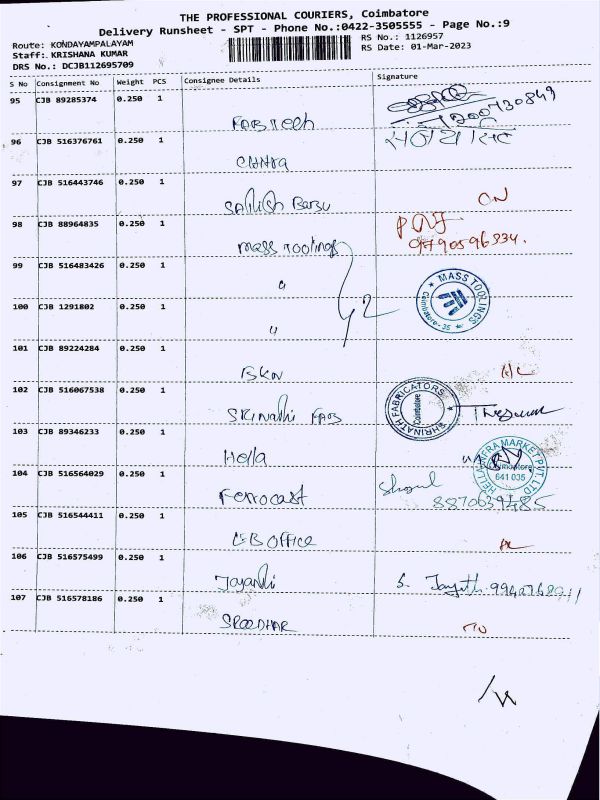 THE PROFESSIONAL COURIERS, Coimbatore
Delivery Runsheet - SPT - Phone No.:0422-3505555 - Page No.:9
Route: KONDAYAMPALAYAM
RS No.: 1126957
Staff: KRISHANA KUMAR
RS Date: 01-Mar-2023
DRS No.: DCJB112695709
S No Consignment No Weight PCS Consignee Details Signature
95 CJB 89285374 0.250 1
FABTech
96 CJB 516376761 0.250 1
97 CJB 516443746 0.250 1
Satlish Babu
ON
98 CJB 88964835 0.250 1
Mass Toolings
99 CJB 516483426 0.250 1
"
MASS TOOLINGS
Coimbatore-35
100 CJB 1291802 0.250 1
"
101 CJB 89224284 0.250 1
BKN
102 CJB 516067538 0.250 1
Srinathi FAB
SHRINATH FABRICATORS
Coimbatore
103 CJB 89346233 0.250 1
Hella
HELLA INFRA MARKET PVT. LTD
Coimbatore
641 035
104 CJB 516564029 0.250 1
Ferrocast
8870639485
105 CJB 516544411 0.250 1
EB OFFICE
106 CJB 516575499 0.250 1
Jayanthi
107 CJB 516578186 0.250 1
SREEDHAR